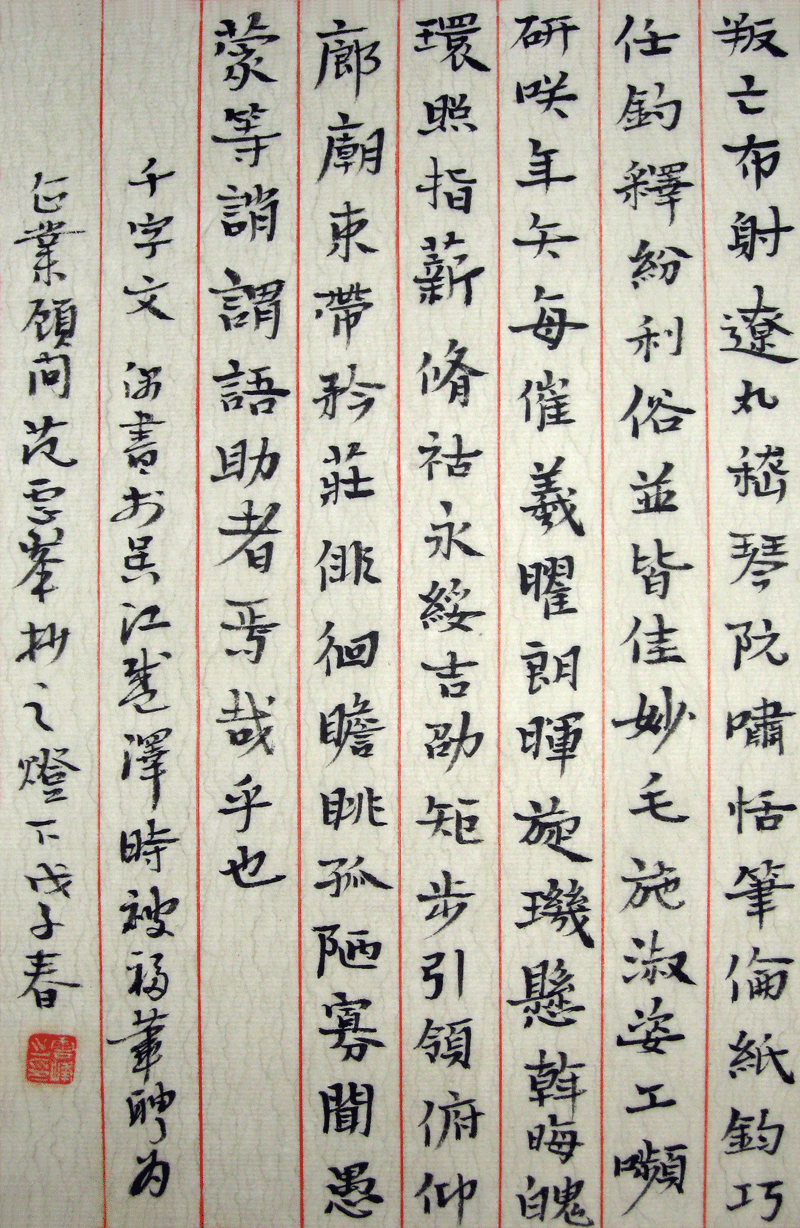 叛亡布射遼丸嵇琴阮嘯恬筆倫紙鈞巧
任釣釋紛利俗並皆佳妙毛施淑姿工嚬
研咲年矢每催羲曜朗暉旋璣懸斡晦魄
環照指薪脩祜永綏吉劭矩步引領俯仰
廊廟束帶矜莊俳徊瞻眺孤陋寡聞愚
蒙等誚謂語助者焉哉乎也
千字文 書於吳江盛澤時被福華聘为
企業顾问范雲峯抄之燈下戊子春